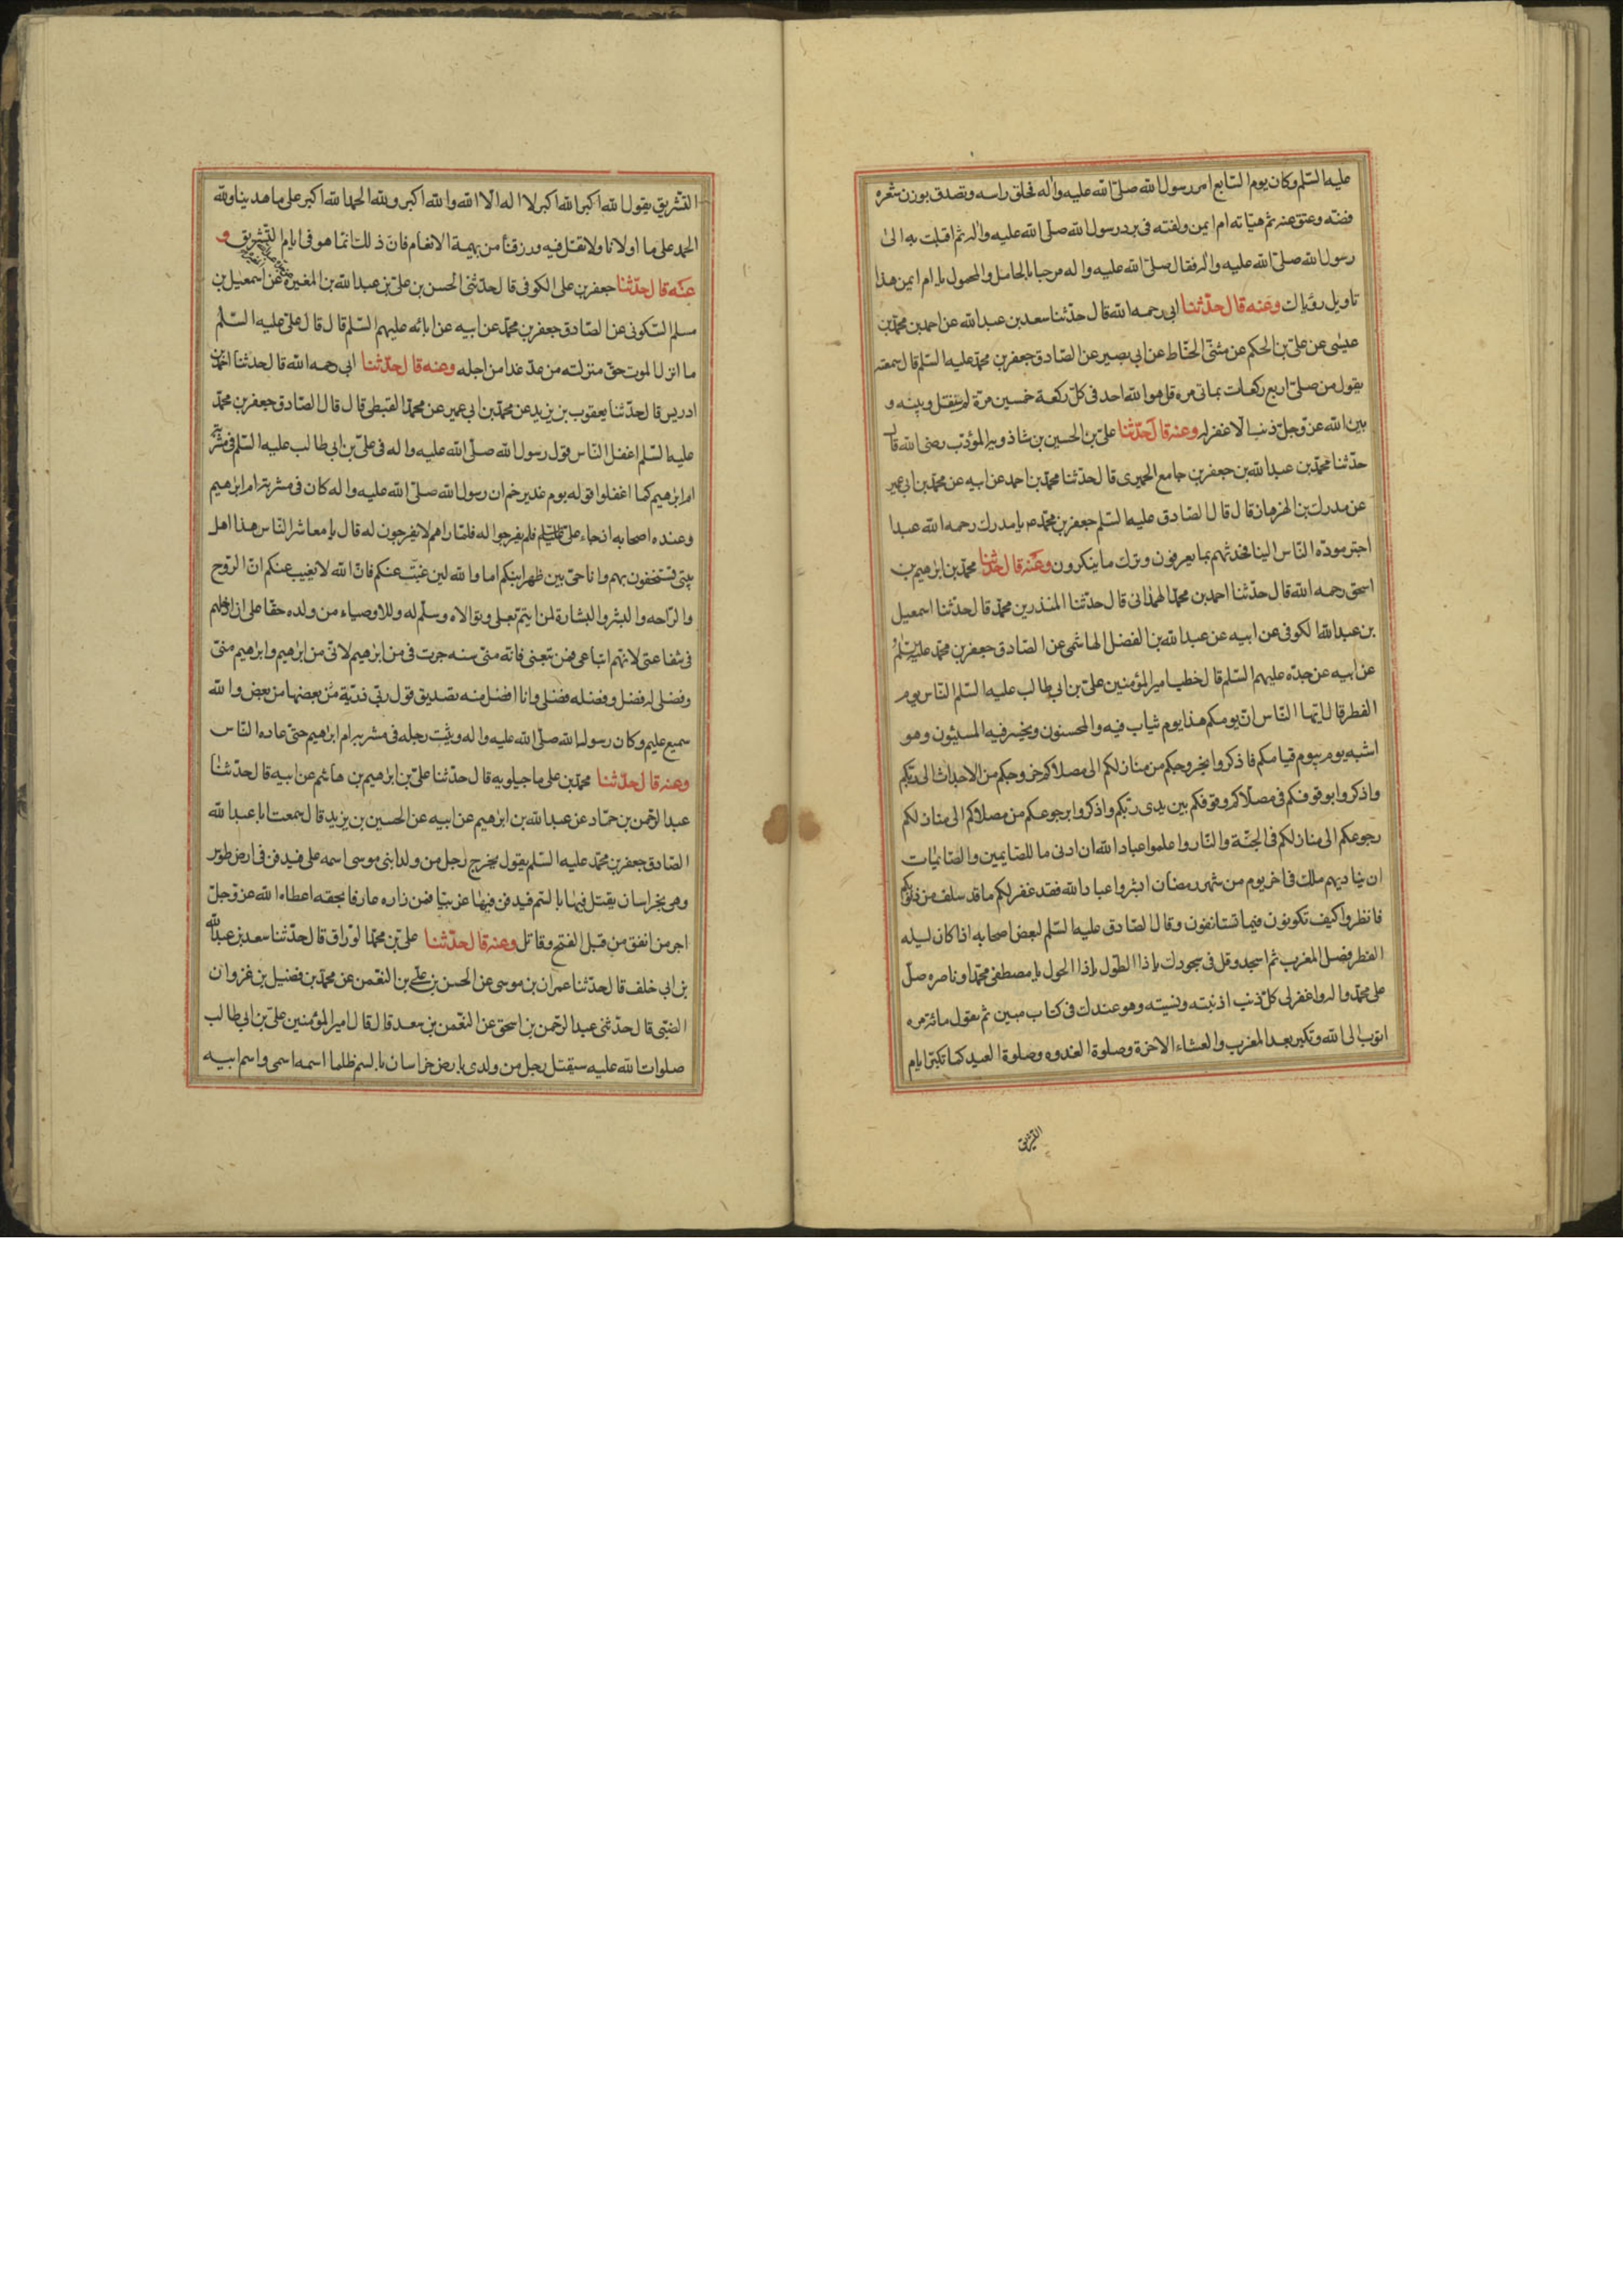 عليه السّلم وكان يوم السّابع امر رسول الله صلّى الله عليه واله فحلق راسه وتصدق بوزن شعره
فضّه وعق عنه ثم هيّاته ام ايمن ولفته فى برد رسول الله صلّى الله عليه واله ثم اقبلت به الى
رسول الله صلّى الله عليه واله فقال صلّى الله عليه واله مرحبا بالحامل والمحمول يا ام ايمن هذا
تاويل رؤياك وعنه قال حدّثنا ابى رحمه الله قال حدّثنا سعد بن عبد الله عن احمد بن محمّد بن
عيسى عن علىّ بن الحكم عن مثنّى الحنّاط عن ابى بصير عن الصّادق جعفر بن محمّد عليه السّلم قال سمعته
يقول من صلّى اربع ركعات بماتى مره قل هو الله احد فى كلّ ركعة خمسين مرّة لم ينفتل وبينه و
بين الله عزّ وجلّ ذنب الّا غفر له وعنه قال حدّثنا علىّ بن الحسين بن شاذويه المؤدّب رضى الله قال
حدّثنا محمّد بن عبد الله بن جعفر بن جامع الحميرى قال حدّثنا محمّد بن احمد عن ابيه عن محمّد بن ابى عمير
عن مدرك بن الهزهاز قال قال الصّادق عليه السّلم جعفر بن محمّد يا مدرك رحمه الله عبدا
اجتر مودّه النّاس الينا فحدثهم بما يعرفون وترك ما ينكرون وعنه قال حدّثنا محمّد بن ابرهيم بن
اسحق رحمه الله قال حدّثنا احمد بن محمّد الهمدانى قال حدّثنا المنذر بن محمّد قال حدّثنا اسمعيل
بن عبد الله الكوفى عن ابيه عن عبد الله بن الفضل الهاشمى عن الصّادق جعفر بن محمّد عليه السّلم
عن ابيه عن جدّه عليهم السّلم قال خطب امير المؤمنين علىّ بن ابى طالب عليه السّلم النّاس يوم
الفطر قال ايّها النّاس انّ يومكم هذا يوم يثاب فيه والمحسنون ويخسر فيه المسيئون وهو
اشبه يوم بيوم قيامكم فاذكروا بخروجكم من منازلكم الى مصلاكم خروجكم من الاجداث الى ربّكم
واذكروا بوقوفكم فى مصلّاكم وقوفكم بين يدى ربّكم واذكروا برجوعكم من مصلاكم الى منازلكم
رجوعكم الى منازلكم فى الجنّة والنّار واعلموا عباد الله ان ادنى ما للصّايمين والصّائمات
ان يناديهم ملك فى اخر يوم من شهر رمضان ابشروا عباد الله فقد غفر لكم ما قد سلف من ذنوبكم
فانظروا كيف تكونون فيما تستانفون وقال الصّادق عليه السّلم لبعض اصحابه اذا كان ليله
الفطر فصل المغرب ثم اسجد وقل فى سجودك يا ذا الطّول يا ذا الحول يا مصطفى محمّد وناصره صلّ
على محمّد واله واغفر لى كلّ ذنب اذنبته ونسيته وهو عندك فى كتاب مبين ثم يقول مائة مره
اتوب الى الله وتكبر بعد المغرب والعشاء الاخرة وصلوة الغدوه وصلوة العيد كما تكبّر ايام
التشريق
التّشريق يقول الله اكبر الله اكبر لا اله الّا الله والله اكبر ولله الحمد الله اكبر على ما هدينا ولله
الحمد على ما اولانا ولا تقل فيه ورزقنا من بهيمة الانعام فانّ ذلك انّما هو فى ايام التّشريق و
عنه قال حدّثنا جعفر بن على الكوفى قال حدّثنى الحسن بن علىّ بن عبد الله بن المغيرة عن اسمعيل بن
مسلم السّكونى عن الصّادق جعفر بن محمّد عن ابيه عن ابائه عليهم السّلم قال قال علىّ عليه السّلم
ما انزل الموت حقّ منزلته من عدّ غدا من اجله وعنه قال حدّثنا ابى رحمه الله قال حدثنا احمد بن
ادريس قال حدّثنا يعقوب بن يزيد عن محمّد بن ابى عمير عن محمّد القبطى قال قال الصّادق جعفر بن محمّد
عليه السّلم اغفل النّاس قول رسول الله صلّى الله عليه واله فى علىّ بن ابى طالب عليه السّلم فى مشربة
ام ابرهيم كما اغفلوا قوله يوم غدير خم ان رسول الله صلّى الله عليه واله كان فى مشربة ام ابرهيم
وعنده اصحابه اذ جاء علىّ عليه السّلم فلم يفرجوا له فلمّا راهم لا يفرجون له قال يا معاشر النّاس هذا اهل
بيتى تستخفون بهم وانا حىّ بين ظهرانيكم اما والله لين غبت عنكم فانّ الله لا يغيب عنكم انّ الرّوح
والرّاحه والبشر والبشارة لمن ايتمّ بعلى وتولاه وسلّم له وللاوصياء من ولده حقّا على ان ادخلهم
فى شفاعتى لانهم اتباعى فمن تبعنى فانّه منّى سنه جرت فى من ابرهيم لانّى من ابرهيم وابرهيم منّى
وفضلى له فضل وفضله فضلى وانا افضل منه تصديق قول ربّى ذريّة بعضها من بعض والله
سميع عليم وكان رسول الله صلّى الله عليه واله وثبت رجله فى مشربه ام ابرهيم حتّى عاده النّاس
وعنه قال حدّثنا محمّد بن على ماجيلويه قال حدّثنا علىّ بن ابرهيم بن هاشم عن ابيه قال حدّثنا
عبد الرّحمن بن حمّاد عن عبد الله بن ابرهيم عن ابيه عن الحسين بن يزيد قال سمعت ابا عبد الله
الصّادق جعفر بن محمّد عليه السّلم يقول يخرج رجل من ولد ابنى موسى اسمه على فيدفن فى ارض طوس
وهى بخراسان يقتل فيها بالسّم فيدفن فيها غريبا فمن زاره عارفا بحقه اعطاه الله عزّ وجلّ
اجر من انفق من قبل الفتح وقاتل وعنه قال حدّثنا علىّ بن محمّد الورّاق قال حدّثنا سعد بن عبد الله
بن ابى خلف قال حدّثنا عمران بن موسى عن الحسن بن علىّ بن النعمن عن محمّد بن فضيل بن غزوان
الضّبّى قال حدّثنى عبد الرّحمن بن اسحق عن النعمن بن سعد قال قال امير المؤمنين علىّ بن ابى طالب
صلوات الله عليه سيقتل رجل من ولدى بارض خراسان بالسم ظلما اسمه اسمى واسم ابيه